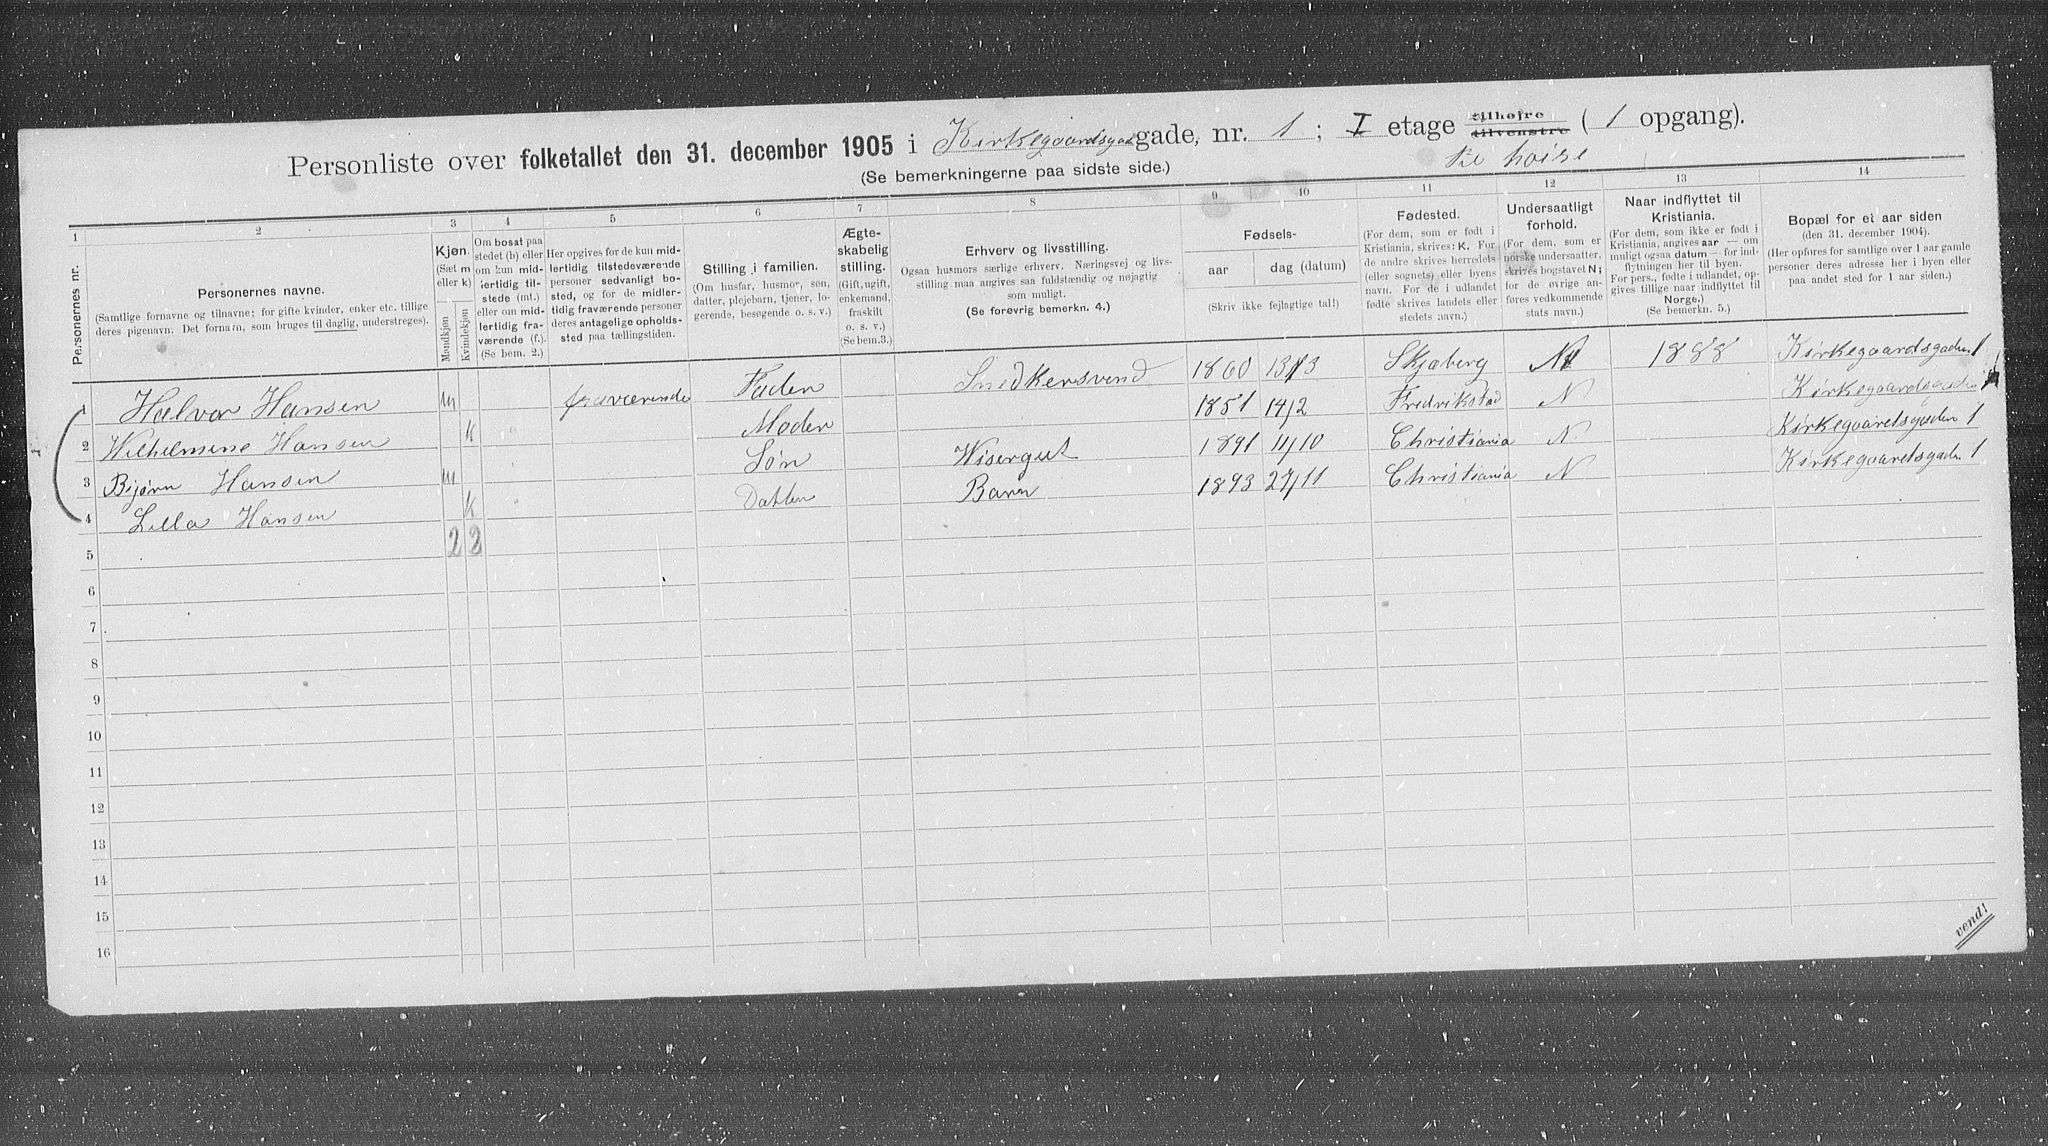 Personliste over folketallet den 31. december 1905 i Kirkegaardsgadgade, nr. 1; I etage tilhøjre tilvenstre (1 opgang).
til høire
(Se bemerkningerne paa sidste side.)
1 2 3 4 5 6 7 8 9 10 11 12 13 14
Personernes nr.
Personernes navne.
(Samtlige fornavne og tilnavne; for gifte kvinder, enker etc. tillige
deres pigenavn. Det fornavn, som bruges til daglig, understreges).
Kjøn.
(Sæt m
eller k)
Mandkjøn
Kvindekjøn
Om bosat paa
stedet (b) eller
om kun mid-
lertidig til-
stede (mt.)
eller om mid-
lertidig fra-
værende (f.).
(Se bem. 2.)
Her opgives for de kun mid-
lertidig tilstedeværende
personer sedvanlig bo-
sted, og for de midler-
tidig fraværende personer
deres antagelige opholds-
sted paa tællingstiden.
Stilling i familien.
(Om husfar, husmor, søn,
datter, plejebarn, tjener, lo-
gerende, besøgende o. s. v.)
Ægte-
skabelig
stilling.
(Gift, ugift,
enkemand,
fraskilt
o. s. v.)
(Se bem.3.)
Erhverv og livsstilling.
Ogsaa husmors særlige erhverv. Næringsvej og livs-
stilling maa angives saa fuldstændig og nøjagtig
som muligt.
(Se forøvrig bemerkn. 4.)
Fødsels-
aar
dag (datum)
(Skriv ikke fejlagtige tal!)
Fødested.
(For dem, som er født i
Kristiania, skrives: K. For
de andre skrives herredets
(eller sognets) eller byens
navn. For de i udlandet
fødte skrives landets eller
stedets navn.)
Undersaatligt
forhold.
(For dem, som er
norske undersaatter,
skrives bogstavet N;
for de øvrige an-
føres vedkommende
stats navn.)
Naar indflyttet til
Kristiania.
(For dem, som ikke er født i
Kristiania, angives aar — om
muligt ogsaa datum — for ind-
flytningen her til byen.
For pers., fødte i udlandet, op-
gives tillige naar indflyttet til
Norge.)
(Se bemerkn. 5.)
Bopæl for et aar siden
(den 31. december 1904).
(Her opføres for samtlige over 1 aar gamle
personer deres adresse her i byen eller
paa andet sted for 1 aar siden.)
1 Halvor Hansen m fraværende Fader Snedkersvend 1860 13/3 Skjeberg N 1888 Kirkegaardsgaden 1
2 Wilhelmine Hansen k Moder 1851 14/2 Fredrikstad N Kirkegaardsgaden 1
3 Bjørn Hansen m Søn Wisergut 1891 11/10 Christiania N Kirkegaardsgaden 1
4 Lilla Hansen k Datter Barn 1893 27/11 Christiania N Kirkegaardsgaden 1
5 2 2
6
7
8
9
10
11
12
13
14
15
16
vend!